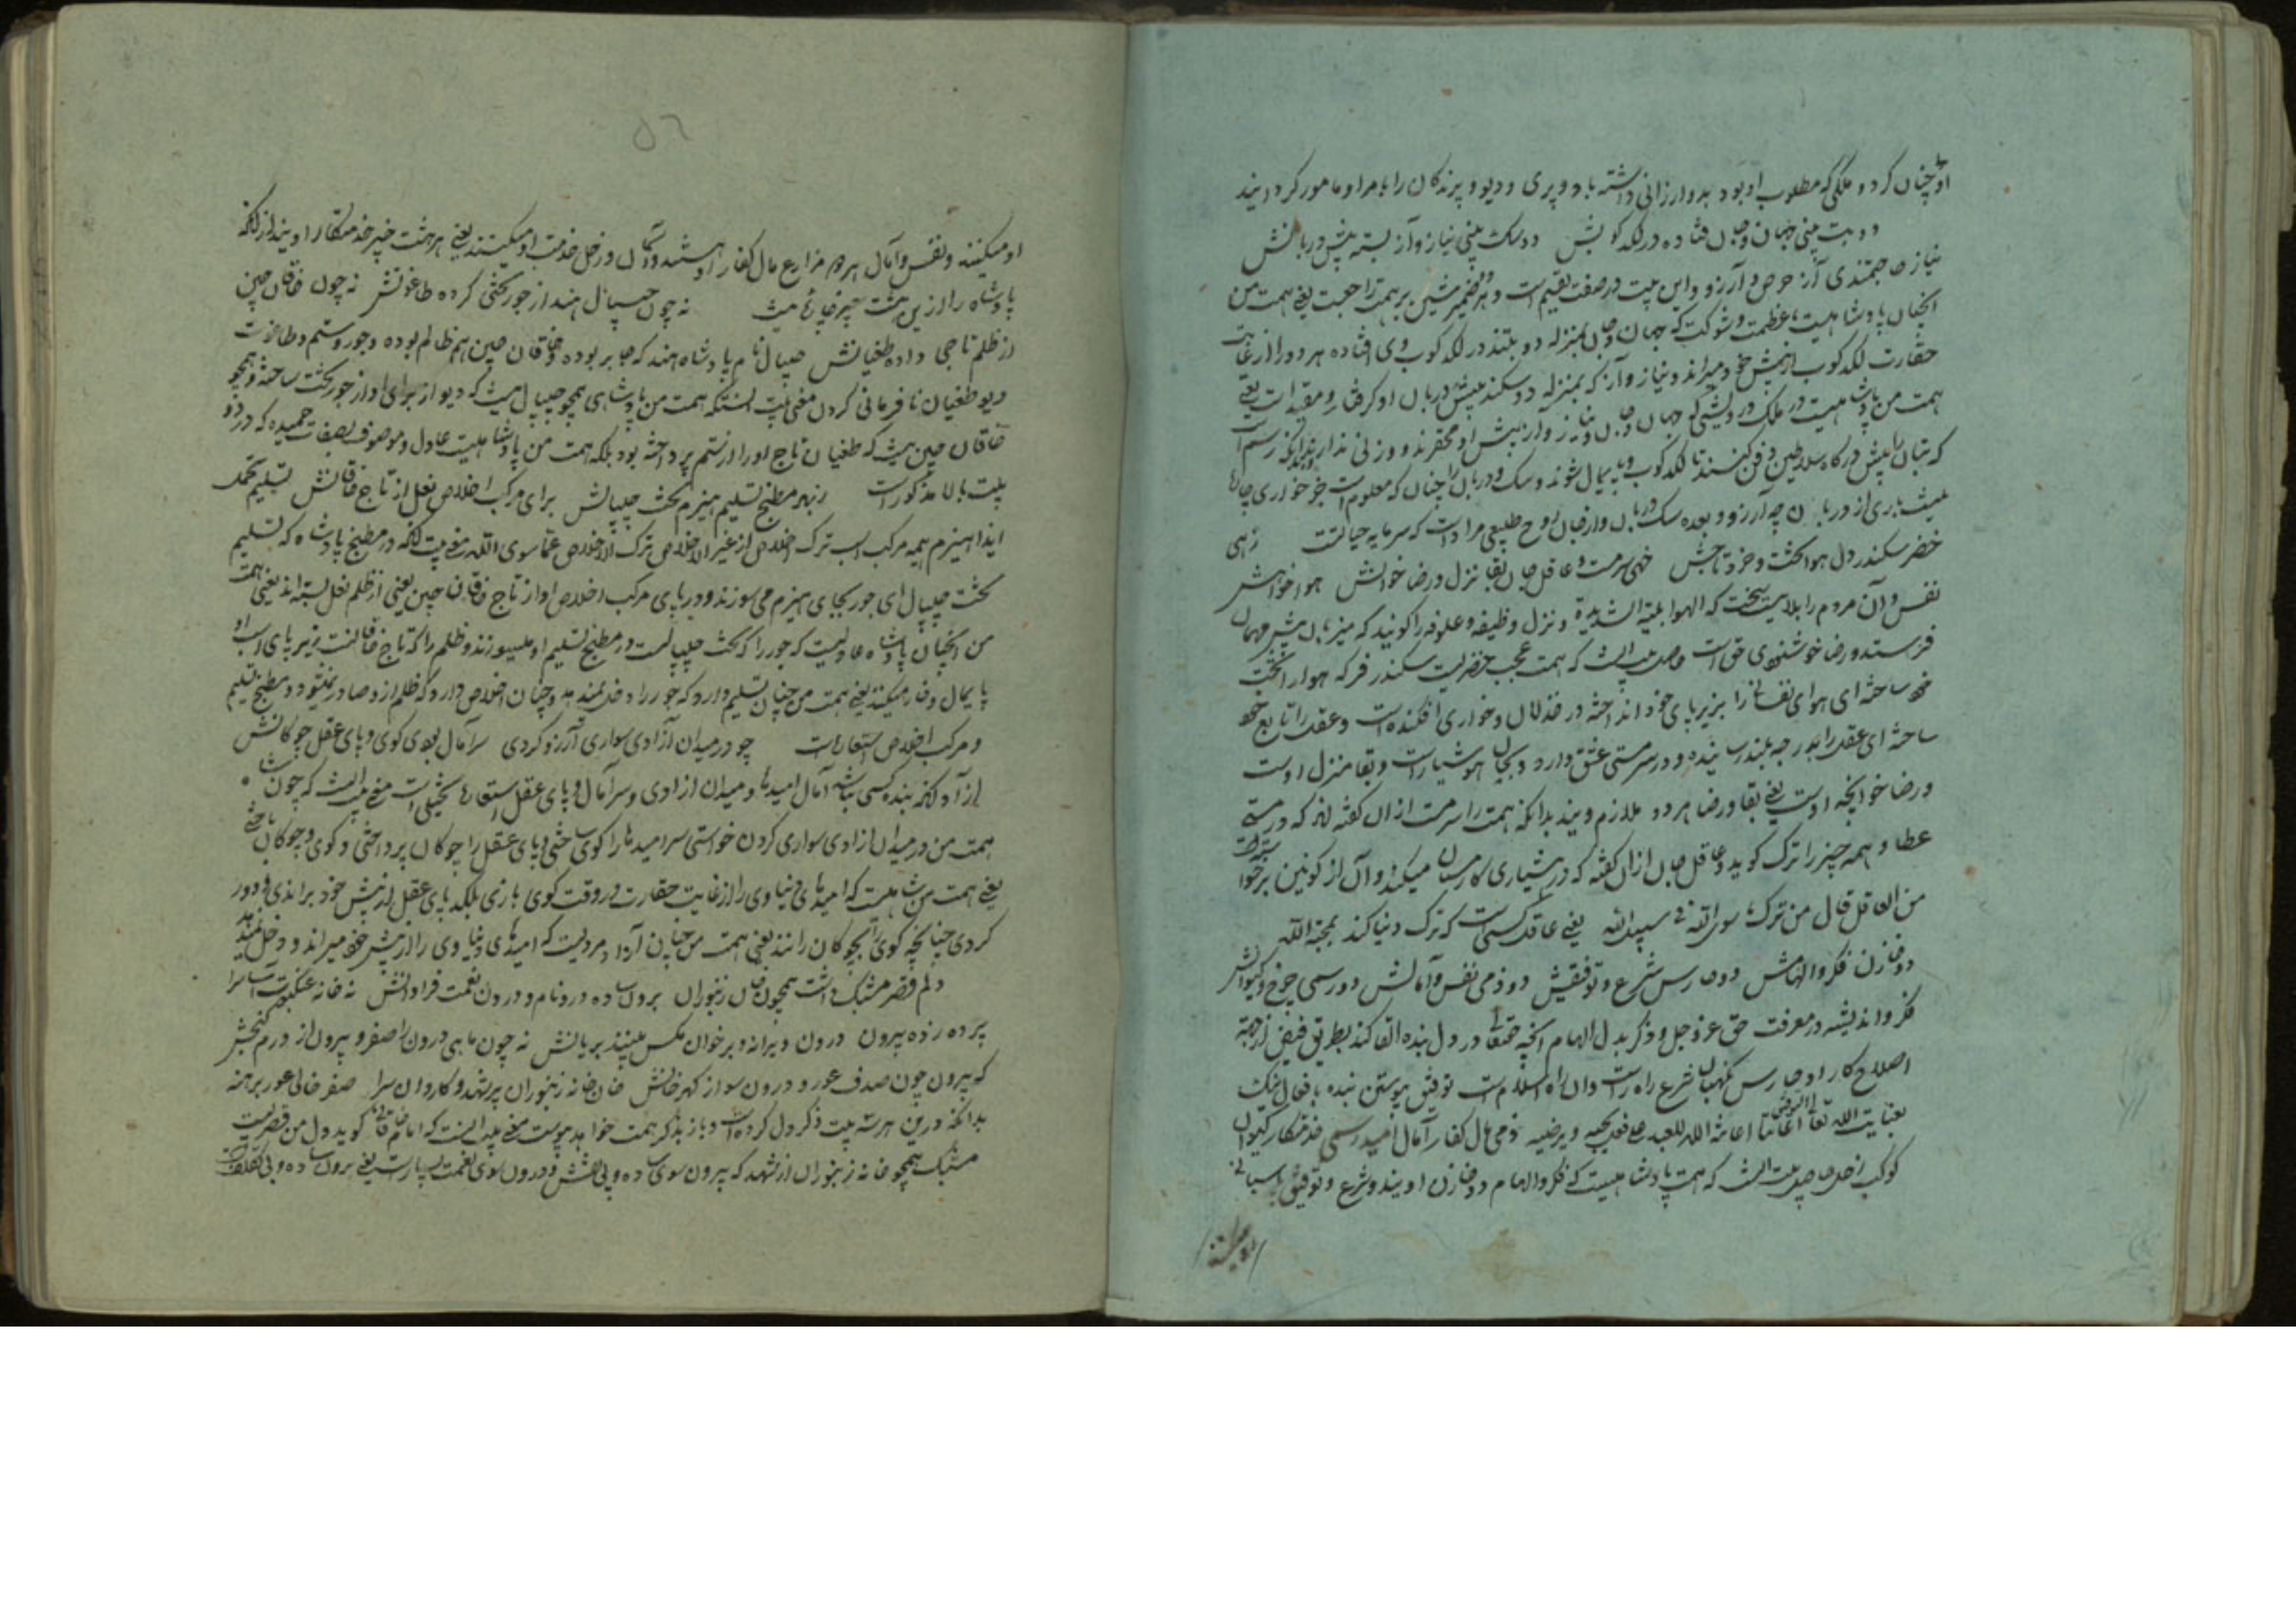 او چنان کرد و ملکی که مطلوب او بود بدو ارزانی داشته باد و پری و دیو و پرندکان را بامر او مامور کردانید
دو بت بینی جهان و جان فتاده در لکدکوبش دو سک بینی نیاز و آز بسته پیش دربانش
نیاز حاجتمندی آز حرص و آرزو و این بیت در صفت تقیم است و هر ضمیر شین بر همت راجعست یعنی همت من
انچنان پادشاهیست بعظمت و شوکت که جهان و جان بمنزله دو بتند در لکدکوب وی افتاده هر دو را از غایت
حقارت لکدکوب از پیش خود میراند و نیاز و آز که بمنزله دو سکند پیش دربان او کرفتار و مقید است یعنی
همت من پادشاهیست در ملک درویشی که جهان و جان و نیاز و آز پیش او محقرند و وزنی ندارند بدانکه رسم است
که بتان را پیش درکاه سلاطین دفن کنند تا لکدکوب و پایمال شوند و سک و دربان را چنان که معلوم است جز خواری جای
نیست باری از دربان چه آرزو و بعده سک دربان و از جان روح طبیعی مراد است که سرمایه حیات است زهی
خضر سکندر دل هوا تخت و خرد تاجش خهی سرمست عاقل جان بقا نزل و رضا خوانش هوا خواهش
نفس و آن مردم را بلاییست سخت که الهوا بلیة الشدیدة و نزل وظیفه و علوفه را کویند که میزبان پیش مهمان
فرستد و رضا خوشنودی حق است حاصل بیت انست که همت عجب خضریست سکندر فر که هوا را تخت
خود ساخته ای هوای نفسانی را بزیر پای خود انداخته در خذلان و خواری افکنده است و عقل را تابع خود
ساخته ای عقل را بدرجه بلند رسانیده و در سرمستی عشق دارد و بجان هوشیار است و بقا منزل اوست
و رضا خوانچه اوست یعنی بقا و رضا هر دو ملازم ویند بدانکه همت را سرمست از ان کفته اند که در مستی
عطا و همه چیز را ترک کوید و عاقل جان از ان کفته که در هشیاری کار مستان میکند و آن از کونین برخواستن است
من العاقل قال من ترک ما سوی الله فی سبیل الله یعنی عاقل کسی است که ترک دنیا کند بمحبة الله
دو خازن فکر و الهامش دو حارس شرع و توفیقش دو ذمی نفس و آمالش دو رسمی چرخ و کیوانش
فکر و اندیشه در معرفت حق عز و جل و ذکر بدل الهام آنچه حقتعالی در دل بنده القا کند بطریق فیض از جهة
اصلاح کار او حارس نکهبان شرع راه راست و ان راه اسلام است توفیق پیوستن بنده بافعال نیک
بعنایت الله تعالی التوفیق اعانة الله للعبد علی فعل یحبه و یرضیه ذمی مال کفار آمال امید رسمی خدمتکار کیوان
کوکب زحل حاصل بیت انست که همت پادشاهیست که فکر و الهام دو خازن اویند و شرع و توفیق پاسبانی
او میکنند و نفس و آمال هر دم مزارع مال کفار او هستند و آسمان و زحل خدمت او میکنند یعنی هر هشت چیز خدمتکار اویند از آنکه
پادشاه را ازین هشت چیز چاره نیست نه چون جیپال هند از جور تختی کرده طاغوتش نه چون خاقان چین
از ظلم تاجی داده طغیانش جیپال نام پادشاه هند که جابر بوده و خاقان چین هم ظالم بوده و جور و ستم و طاغوت
دیو طغیان نافرمانی کردن معنی بیت انستکه همت من پادشاهی همچو جیپال نیست که دیو از برای او از جور تخت ساخته و همچو
خاقان چین نیست که طغیان تاج او را از ستم پرداخته بود بلکه همت من پادشاهیست عادل و موصوف بصفات حمیده که در دو
بیت بالا مذکور است ز بهر مطبخ تسلیم هیزم تخت جیپالش برای مرکب اخلاص نعل از تاج خاقانش تسلیم تحمل
ایذا هیزم هیمه مرکب اسب ترک اخلاص از غیر الاخلاص ترک الاخلاص عما سوی الله معنی بیت آنکه در مطبخ پادشاه که تسلیم
تخت جیپال ای جور بجای هیزم می سوزند و در پای مرکب اخلاص او از تاج خاقان چین یعنی از ظلم نعل بسته اند یعنی همت
من انچنان پادشاه عادلیست که جور را که تخت جیپالست در مطبخ تسلیم او میسوزند و ظلم را که تاج خاقانست بزیر پای اسب او
پایمال و فنا میکنند یعنی همت من چنان تسلیم دارد که جور را دخل نمیدهد و چنان اخلاص دارد که ظلم ازو صادر نمیشود و مطبخ تسلیم
و مرکب اخلاص استعاره است چو در میدان آزادی سواری آرزو کردی سر آمال بودی کوی و پای عقل چوکانش
آزاد آنکه بنده کسی نباشد آمال امیدها و میدان ازادی و سر آمال و پای عقل استعاره تخییلی است معنی بیت انست که چون شاه
همت من در میدان ازادی سواری کردن خواستی سر امیدها را کوی ساختی و پای عقل را چوکان پرداختی و کوی و چوکان باختی
یعنی همت من شاهیست که امیدهای دنیاوی را از غایت حقارت در وقت کوی بازی بلکه پای عقل از پیش خود براندی و دور
کردی چنانچه کوی را بچوکان رانند یعنی همت من چنان آزاد مردیست که امیدهای دنیاوی را از پیش خود میراند و دخل نمیدهد
دلم قصر مشبک داشت همچون خان زنبوران برون ساده در و بام و درون نعمت فراوانش نه خانه عنکبوت آسا سرا
پرده زده بیرون درون ویرانه و بر خوان مکس بینند بریانش نه چون ماهی درون را صفر و بیرون از درم کنجش
که بیرون چون صدف عور و درون سو از کهر خانش خان خانه زنبوران پر شهد و کاروان سرا صفر خالی عور برهنه
بدانکه درین هر سه بیت ذکر دل کرده است و باز بذکر همت خواهد پیوست معنی بیت انست که امام خاقانی کوید دل من قصریست
مشبک همچو خانه زنبوران از شهد که بیرون سوی ساده و بی نقش و درون سوی نعمت بسیار است یعنی برون ساده و بی تکلف